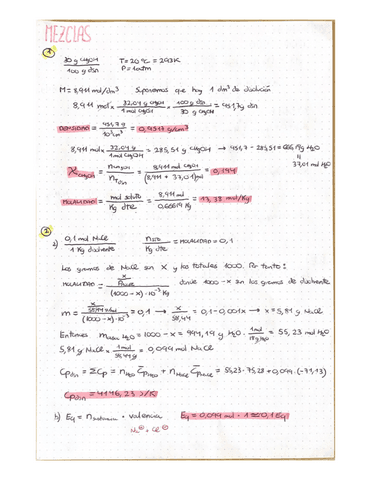 MEZCLAS
1
30 g CH3OH / 100 g dsn    T = 20 ºC = 293 K
P = 1 atm
M = 8,911 mol/dm³    Suponemos que hay 1 dm³ de disolución
8,911 mol x 32,04 g CH3OH / 1 mol CH3OH x 100 g dsn / 30 g CH3OH = 951,7 g dsn
DENSIDAD = 951,7 g / 10³ cm³ = 0,9517 g/cm³
8,911 mol x 32,04 g / 1 mol CH3OH = 285,51 g CH3OH → 951,7 - 285,51 = 666,19 g H2O
↓
37,01 mol H2O
X CH3OH = n CH3OH / n T dsn = 8,911 mol CH3OH / (8,911 + 37,01) mol = 0,194
MOLALIDAD = mol soluto / Kg dte = 8,911 mol / 0,66619 Kg = 13,38 mol/Kg
2
a) 0,1 mol NaCl / 1 Kg disolvente    n sto / Kg dte = MOLALIDAD = 0,1
Los gramos de NaCl son X y los totales 1000. Por tanto:
MOLALIDAD = x / PM NaCl / (1000-x)·10⁻³ Kg    donde 1000-x son los gramos de disolvente
m = x / 58,44 / (1000-x)·10⁻³ = 0,1 → x / 58,44 = 0,1 - 0,001x → x = 5,81 g NaCl
Entonces m H2O = 1000 - x = 994,19 g H2O · 1 mol / 18 g H2O = 55,23 mol H2O
5,81 g NaCl x 1 mol / 58,44 g = 0,099 mol NaCl
Cp dsn = ΣCp = n H2O C̄p H2O + n NaCl C̄p NaCl = 55,23 · 75,28 + 0,099 · (-31,13)
Cp dsn = 4146,23 J/K
b) Eq = n · valencia    Eq = 0,099 mol · 1 ≈ 0,1 Eq
Na⊕ + Cl⊖